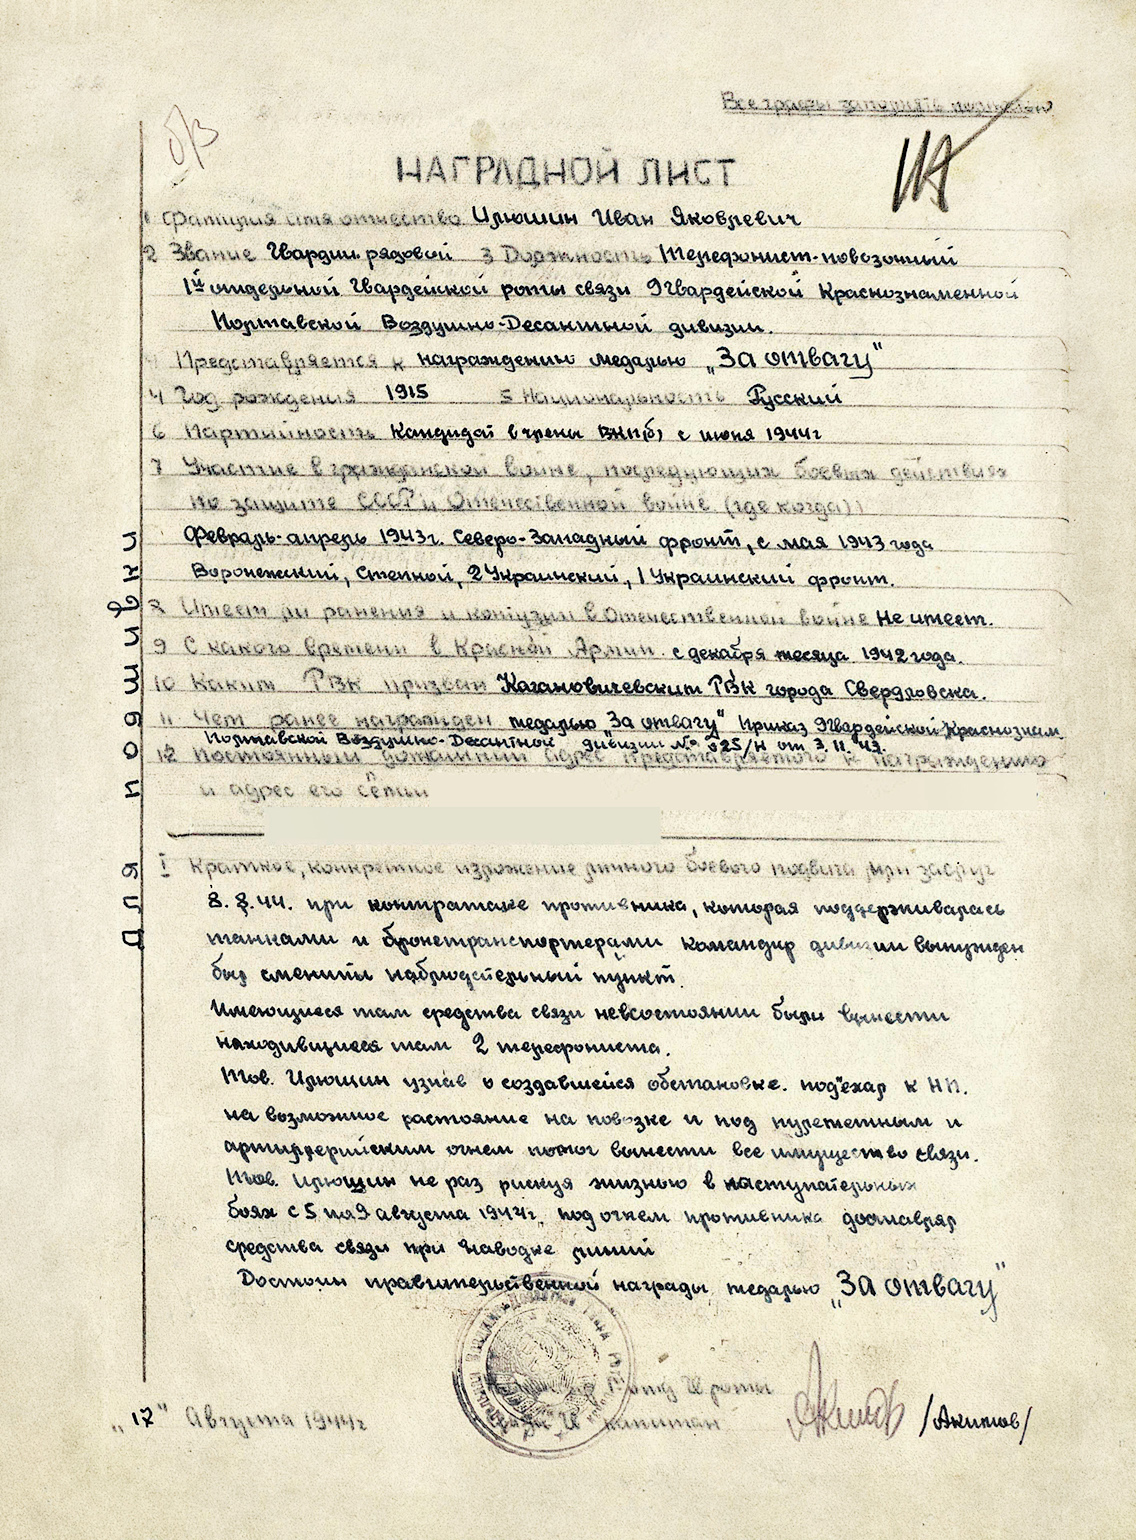 Все графы заполнять полностью
НАГРАДНОЙ ЛИСТ
1 Фамилия имя отчество Илюшин Иван Яковлевич
2 Звание Гвардии рядовой 3 Должность Телефонист-повозочный
1й отдельной Гвардейской роты связи 9 Гвардейской Краснознаменной
Полтавской Воздушно-Десантной дивизии.
Представляется к награждению медалью „За отвагу"
4 Год рождения 1915 5 Национальность Русский
6 Партийность Кандидат в члены ВКП(б) с июня 1944г
7 Участие в гражданской войне, последующих боевых действиях
по защите СССР и Отечественной войне (где когда)
Февраль-апрель 1943г. Северо-Западный фронт, с мая 1943 года
Воронежский, Степной, 2 Украинский, 1 Украинский фронт.
8 Имеет ли ранения и контузии в Отечественной войне Не имеет.
9 С какого времени в Красной Армии с декабря месяца 1942 года.
10 Каким РВК призван Кагановичевским РВК города Свердловска.
11 Чем ранее награжден медалью „За отвагу" Приказ 9 Гвардейской Краснознам.
Полтавской Воздушно-Десантной дивизии № 025/н от 3.11.43.
12 Постоянный домашний адрес представляемого к награждению
и адрес его семьи
I Краткое, конкретное изложение личного боевого подвига или заслуг
8.8.44. при контратаке противника, которая поддерживалась
танками и бронетранспортерами командир дивизии вынужден
был сменить наблюдательный пункт.
Имеющиеся там средства связи невсостоянии были вынести
находившиеся там 2 телефониста.
Тов. Илюшин узнав о создавшейся обстановке. под"ехал к НП.
на возможное растояние на повозке и под пулеметным и
артиллерийским огнем помог вынести все имущество связи.
Тов. Илюшин не раз рискуя жизнью в наступательных
боях с 5 по 9 августа 1944г. под огнем противника доставлял
средства связи при наводке линий
Достоин правительственной награды медалью „За отвагу"
роты
„17" Августа 1944г капитан /Акимов/
Для подшивки